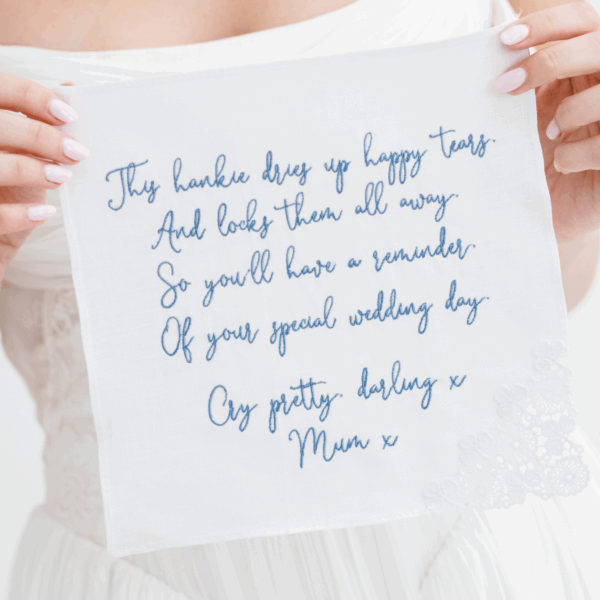 This hankie dries up happy tears.
And locks them all away.
So you'll have a reminder.
Of your special wedding day.
Cry pretty. darling x
Mum x